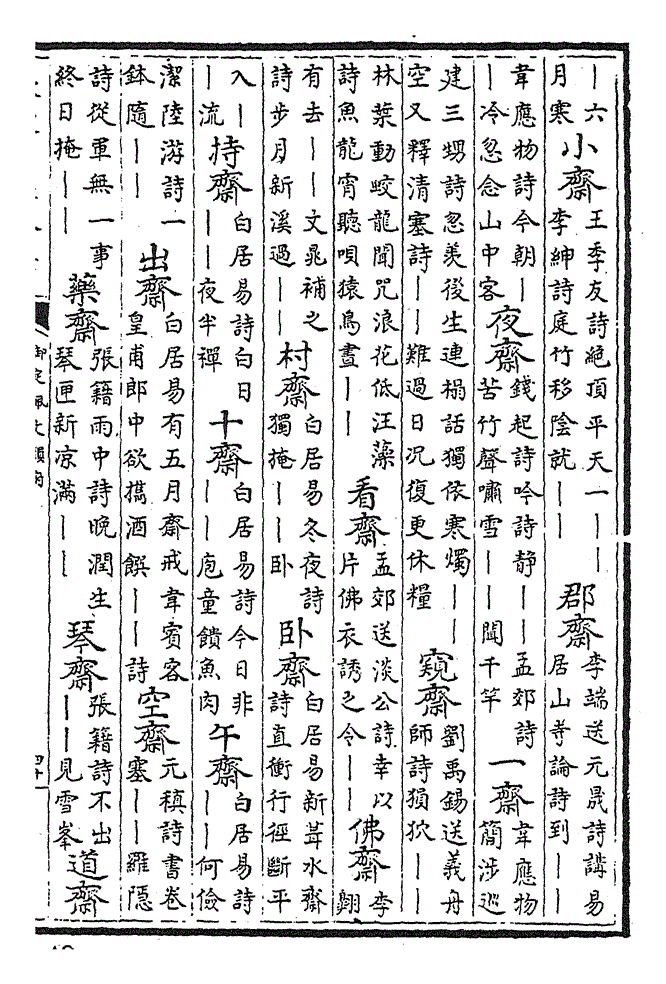 ｜六月寒 小齋 王季友詩絶頂平天一｜｜｜李紳詩庭竹移陰就｜｜ 郡齋 李端送元晟詩講易居山寺論詩到｜｜
韋應物詩今朝｜｜冷忽念山中客 夜齋 錢起詩吟詩静｜｜孟郊詩苦竹聲嘯雪｜｜聞千竿 一齋 韋應物簡涉巡
建三甥詩忽羨後生連榻話獨依寒燭｜｜空又釋清塞詩｜｜難過日况復更休糧 窺齋 劉禹錫送義舟師詩猿狖｜｜
林葉動蛟龍聞咒浪花低汪藻詩魚龍宵聽唄猿鳥晝｜｜ 看齋 孟郊送淡公詩幸以片佛衣誘之令｜｜ 佛齋 李翺
有去｜｜文晁補之詩步月新溪過｜｜ 村齋 白居易冬夜詩獨掩｜｜卧 卧齋 白居易新葺水齋詩直衝行徑斷平
入｜｜流 持齋 白居易詩白日｜｜夜半禪 十齋 白居易詩今日非｜｜庖童饋魚肉 午齋 白居易詩｜｜何儉
潔陸游詩一鉢隨｜｜ 出齋 白居易有五月齋戒韋賓客皇甫郎中欲擕酒饌｜｜詩 空齋 元稹詩書卷塞｜｜羅隠
詩從軍無一事終日掩｜｜ 藥齋 張籍雨中詩晚潤生琴匣新凉滿｜｜ 琴齋 張籍詩不出｜｜見雪峯 道齋
御定佩文韻府